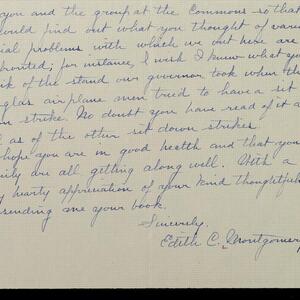 you and the group at the Commons so that
would find out what you thought of vari
ial problems with which we out here are
fronted; for instance, I wish I knew what yo
k of the stand our governor took when the
glas airplane men tried to have a sit
n strike. No doubt you have read of it a
l as of the other sit down strikes
hope you are in good health and that you
mily are all getting along well. With a
y hearty appreciation of your kind thoughtful
sending me your book.
Sincerely,
Edith C. Montgomery